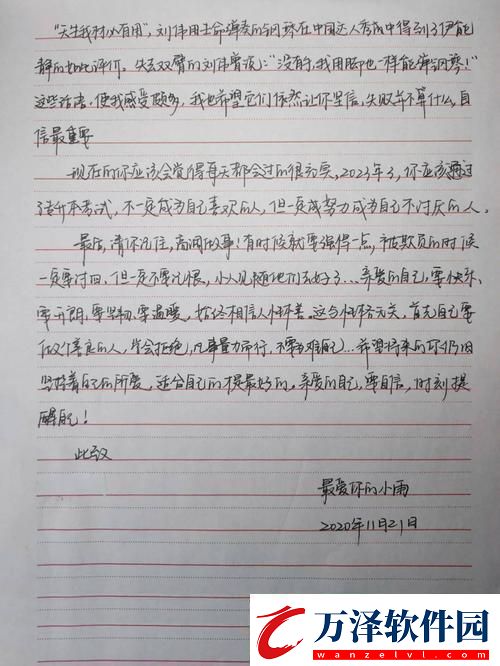 “天生我材必有用”，刘伟用生命弹奏的钢琴在中国达人秀场中得到了伊能
静的如此评价。失去双臂的刘伟曾说：“没有手，我用脚也一样能弹钢琴！”
这些话语，使我感受颇多，我也希望它们依然让你坚信，失败并不算什么，自
信最重要
现在的你应该会觉得每天都会过的很充实，2023年了，你应该通过
专升本考试，不一定成为自己喜欢的人，但一定成努力成为自己不讨厌的人。
最后，请你记住，高调做事！有时候就要强得一点，被欺负的时候
一定要讨回，但一定不要记恨，小人见随他们去好了…亲爱的自己，要快乐、
要开朗、要坚韧、要温暖，始终相信人性本善。这与性格无关，首先自己要
做个善良的人，学会拒绝，凡事量力而行，不要为难自己…希望将来的你仍旧
坚持着自己的所爱，适合自己的才是最好的。亲爱的自己，要自信，时刻提
醒自己！
此致
最爱你的小雨
2020年11月21日
万泽软件园
www.wanzelvl.com